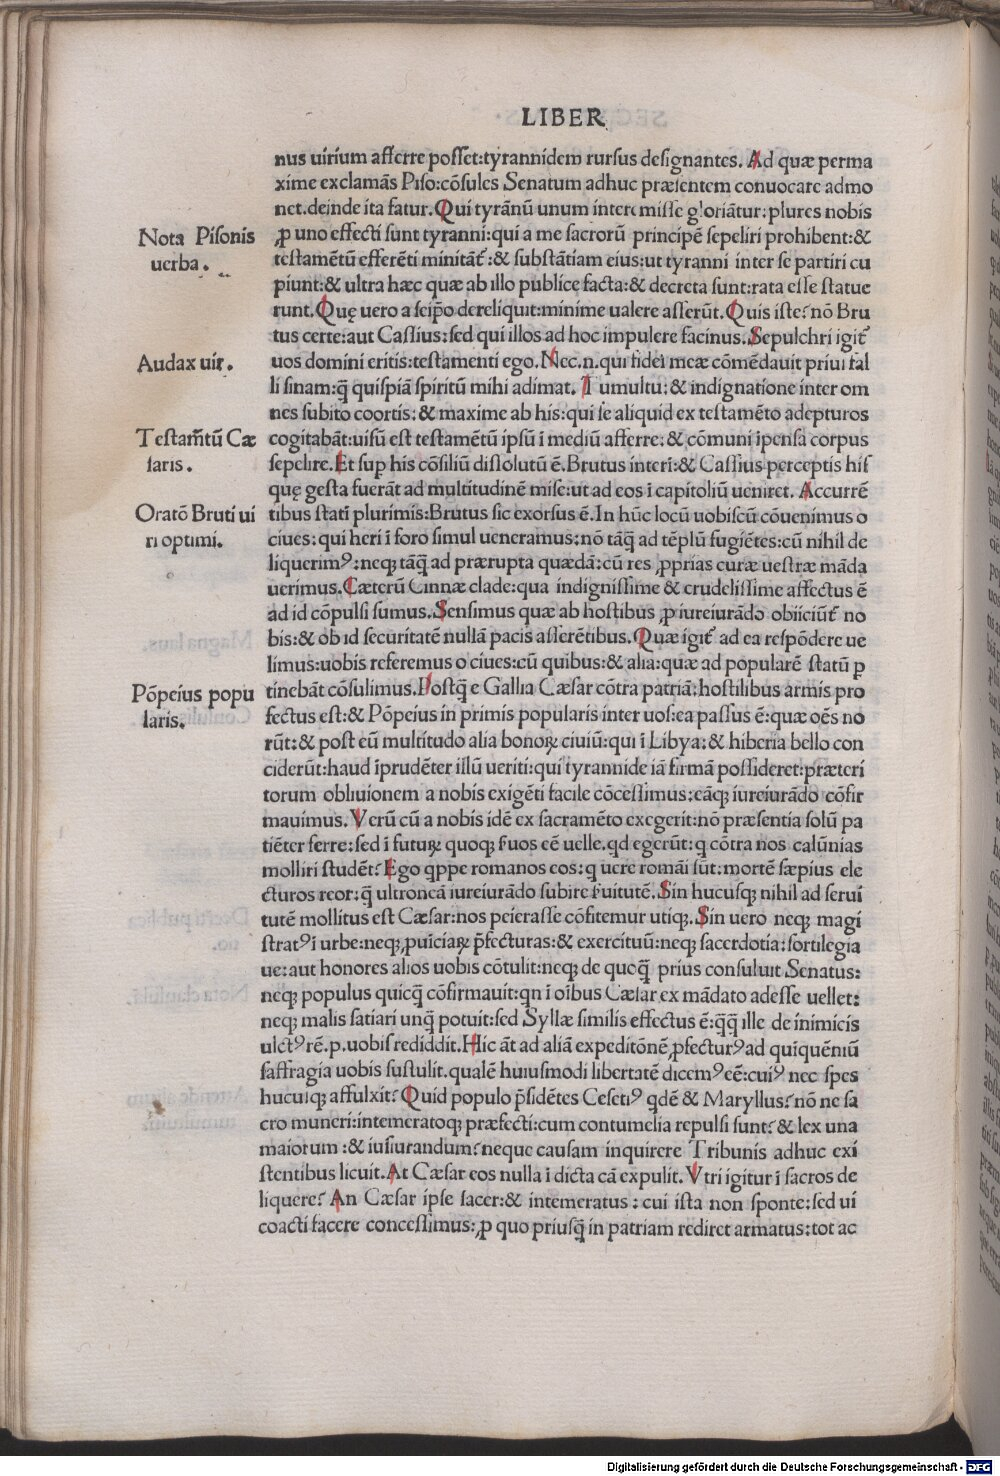 LIBER
nus uirium afferre posset:tyrannidem rursus designantes. Ad quæ perma
xime exclamãs Piso:cõsules Senatum adhuc præsentem conuocare admo
net.deinde ita fatur.Qui tyrãnũ unum interemisse gloriãtur:plures nobis
Nota Pisonis
uerba.
ꝓ uno effecti sunt tyranni:qui a me sacrorũ principẽ sepeliri prohibent:&
testamẽtũ efferẽti minitãt̃:& substãtiam eius:ut tyranni inter se partiri cu
piunt:& ultra hæc quæ ab illo publice facta:& decreta sunt:rata esse statue
runt.Quę uero a seip̃o dereliquit:minime ualere asserũt.Quis iste?nõ Bru
tus certe:aut Cassius:sed qui illos ad hoc impulere facinus.Sepulchri igit̃
Audax uir.
uos domini eritis:testamenti ego.Nec.n.qui fidei meæ cõmẽdauit priui fal
li sinam:q̃ quispiã spiritũ mihi adimat. Tumultu:& indignatione inter om
nes subito coortis:& maxime ab his:qui se aliquid ex testamẽto adepturos
Testam̃tũ Cæ
saris.
cogitabãt:uisũ est testamẽtũ ipsũ ĩ mediũ afferre:& cõmuni ĩpensa corpus
sepelire.Et sup his cõsiliũ dissolutũ ẽ.Brutus interĩ:& Cassius perceptis his
quę gesta fuerãt ad multitudinẽ mise:ut ad eos ĩ capitoliũ ueniret. Accurrẽ
Oratõ Bruti ui
ri optimi.
tibus statĩ plurimis:Brutus sic exorsus ẽ.In hũc locũ uobiscũ cõuenimus o
ciues:qui heri ĩ foro simul ueneramus:nõ tãq̃ ad tẽplũ fugiẽtes:cũ nihil de
liquerimꝰ:neqꝫ tãq̃ ad prærupta quædã:cũ res ꝓprias curæ uestræ mãda
uerimus.Cæterũ Cinnæ clade:qua indignissime & crudelissime affectus ẽ
ad id cõpulsi sumus.Sensimus quæ ab hostibus ꝓ iureiurãdo obiiciũt̃ no
bis:& ob id securitatẽ nullã pacis asserẽtibus.Quæ igit̃ ad ea respõdere ue
limus:uobis referemus o ciues:cũ quibus:& alia:quæ ad popularẽ statũ p
Põpeius popu
laris.
tinebãt cõsulimus.Postq̃ e Gallia Cæsar cõtra patriã:hostilibus armis pro
fectus est:& Põpeius in primis popularis inter uos:ea passus ẽ:quæ oẽs no
rũt:& post eũ multitudo alia bonoꝝ ciuiũ:qui ĩ Libya:& hiberia bello con
ciderũt:haud ĩprudẽter illũ ueriti:qui tyrannide iã firmã possideret:præteri
torum obliuionem a nobis exigẽti facile cõcessimus:eãqꝫ iureiurãdo cõfir
mauimus.Verũ cũ a nobis idẽ ex sacramẽto exegerit:nõ præsentia solũ pa
tiẽter ferre:sed ĩ futuꝝ quoqꝫ suos eẽ uelle.qd egerũt:q cõtra nos calũnias
molliri studẽt?Ego qppe romanos eos:q uere romãi sũt:mortẽ sæpius ele
cturos reor:q̃ ultroneã iureiurãdo subire suitutẽ.Sin hucusqꝫ nihil ad serui
tutẽ mollitus est Cæsar:nos peierasse cõfitemur utiqꝫ.Sin uero neqꝫ magi
stratꝰ ĩ urbe:neqꝫ ꝓuĩciaꝝ p̃fecturas:& exercituũ:neqꝫ sacerdotia:sortilegia
ue:aut honores alios uobis cõtulit:neqꝫ de quoq̃ prius consuluit Senatus:
neqꝫ populus quicq̃ cõfirmauit:qn ĩ oĩbus Cæsar ex mãdato adesse uellet:
neqꝫ malis satiari unq̃ potuit:sed Syllæ similis effectus ẽ:q̃q̃ ille de inimicis
ulctꝰ rẽ.p.uobis reddidit.Hic ãt ad aliã expeditõnẽ ꝓfecturꝰ ad quĩquẽniũ
saffragia uobis sustulit.qualẽ huiusmodi libertatẽ dicemꝰ eẽ:cuiꝰ nec spes
hucusqꝫ affulxit?Quid populo p̃sidẽtes Cesetiꝰ qdẽ & Maryllus?nõ ne sa
cro muneri:intemeratoqꝫ præfecti:cum contumelia repulsi sunt?& lex una
maiorum:& iusiurandum?neque causam inquirere Tribunis adhuc exi
stentibus licuit.At Cæsar eos nulla ĩ dicta cã expulit.Vtri igitur ĩ sacros de
liquere? An Cæsar ipse sacer:& intemeratus : cui ista non sponte:sed ui
coacti facere concessimus:ꝓ quo priusq̃ in patriam rediret armatus:tot ac
Digitalisierung gefördert durch die Deutsche Forschungsgemeinschaft - DFG